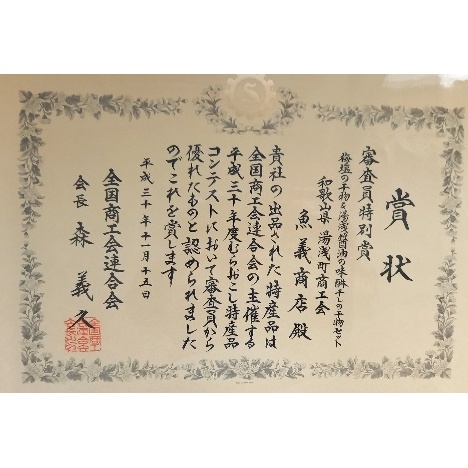 賞状
審査員特別賞
梅塩の干物と湯浅醤油の味醂干しの干物セット
和歌山県 湯浅町商工会
魚義商店 殿
貴社の出品された特産品は
全国商工会連合会の主催する
平成三十年度むらおこし特産品
コンテストにおいて審査員から
優れたものと認められました
のでこれを賞します
平成三十年十一月十五日
全国商工会連合会
会長 森 義久